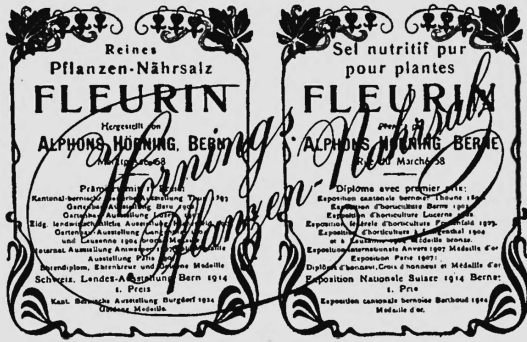 Reines
Pflanzen-Nährsalz
FLEURIN
Hergestellt von
ALPHONS HÖRNING, BERN
Prämiert mit 1. Preis:
Kantonal-bernische Ausstellung
Gartenbau Ausstellung Bern
Gartenbau Ausstellung
Eidg. landwirtschaftliche Ausstellung
Gartenbau-Ausstellung
und Lausanne 1904
Internat. Ausstellung Anvers
Ausstellung Paris
Ehrendiplom, Ehrenkreuz und Goldene Medaille
Schweiz. Landes-Ausstellung Bern 1914
1. Preis
Kant. Bernische Ausstellung Burgdorf 1924
Goldene Medaille
Sel nutritif pur
pour plantes
FLEURIN
ALPHONS HÖRNING BERNE
Rue du Marché 58
Diplôme avec premier prix:
Exposition cantonale bernoise
Exposition d'horticulture Berne
Exposition d'horticulture Lucerne
Exposition fédérale d'horticulture Frauenfeld 1903
Exposition d'horticulture Langenthal 1904
et à Lausanne médaille bronze.
Exposition internationale Anvers 1907 Médaille d'or
Exposition Paris 1907:
Diplôme d'honneur, Croix d'honneur et Médaille d'or
Exposition Nationale Suisse 1914 Berne:
1. Prix
Exposition cantonale bernoise Berthoud 1924
Médaille d'or.
Hörnings
Pflanzen-Nährsalz